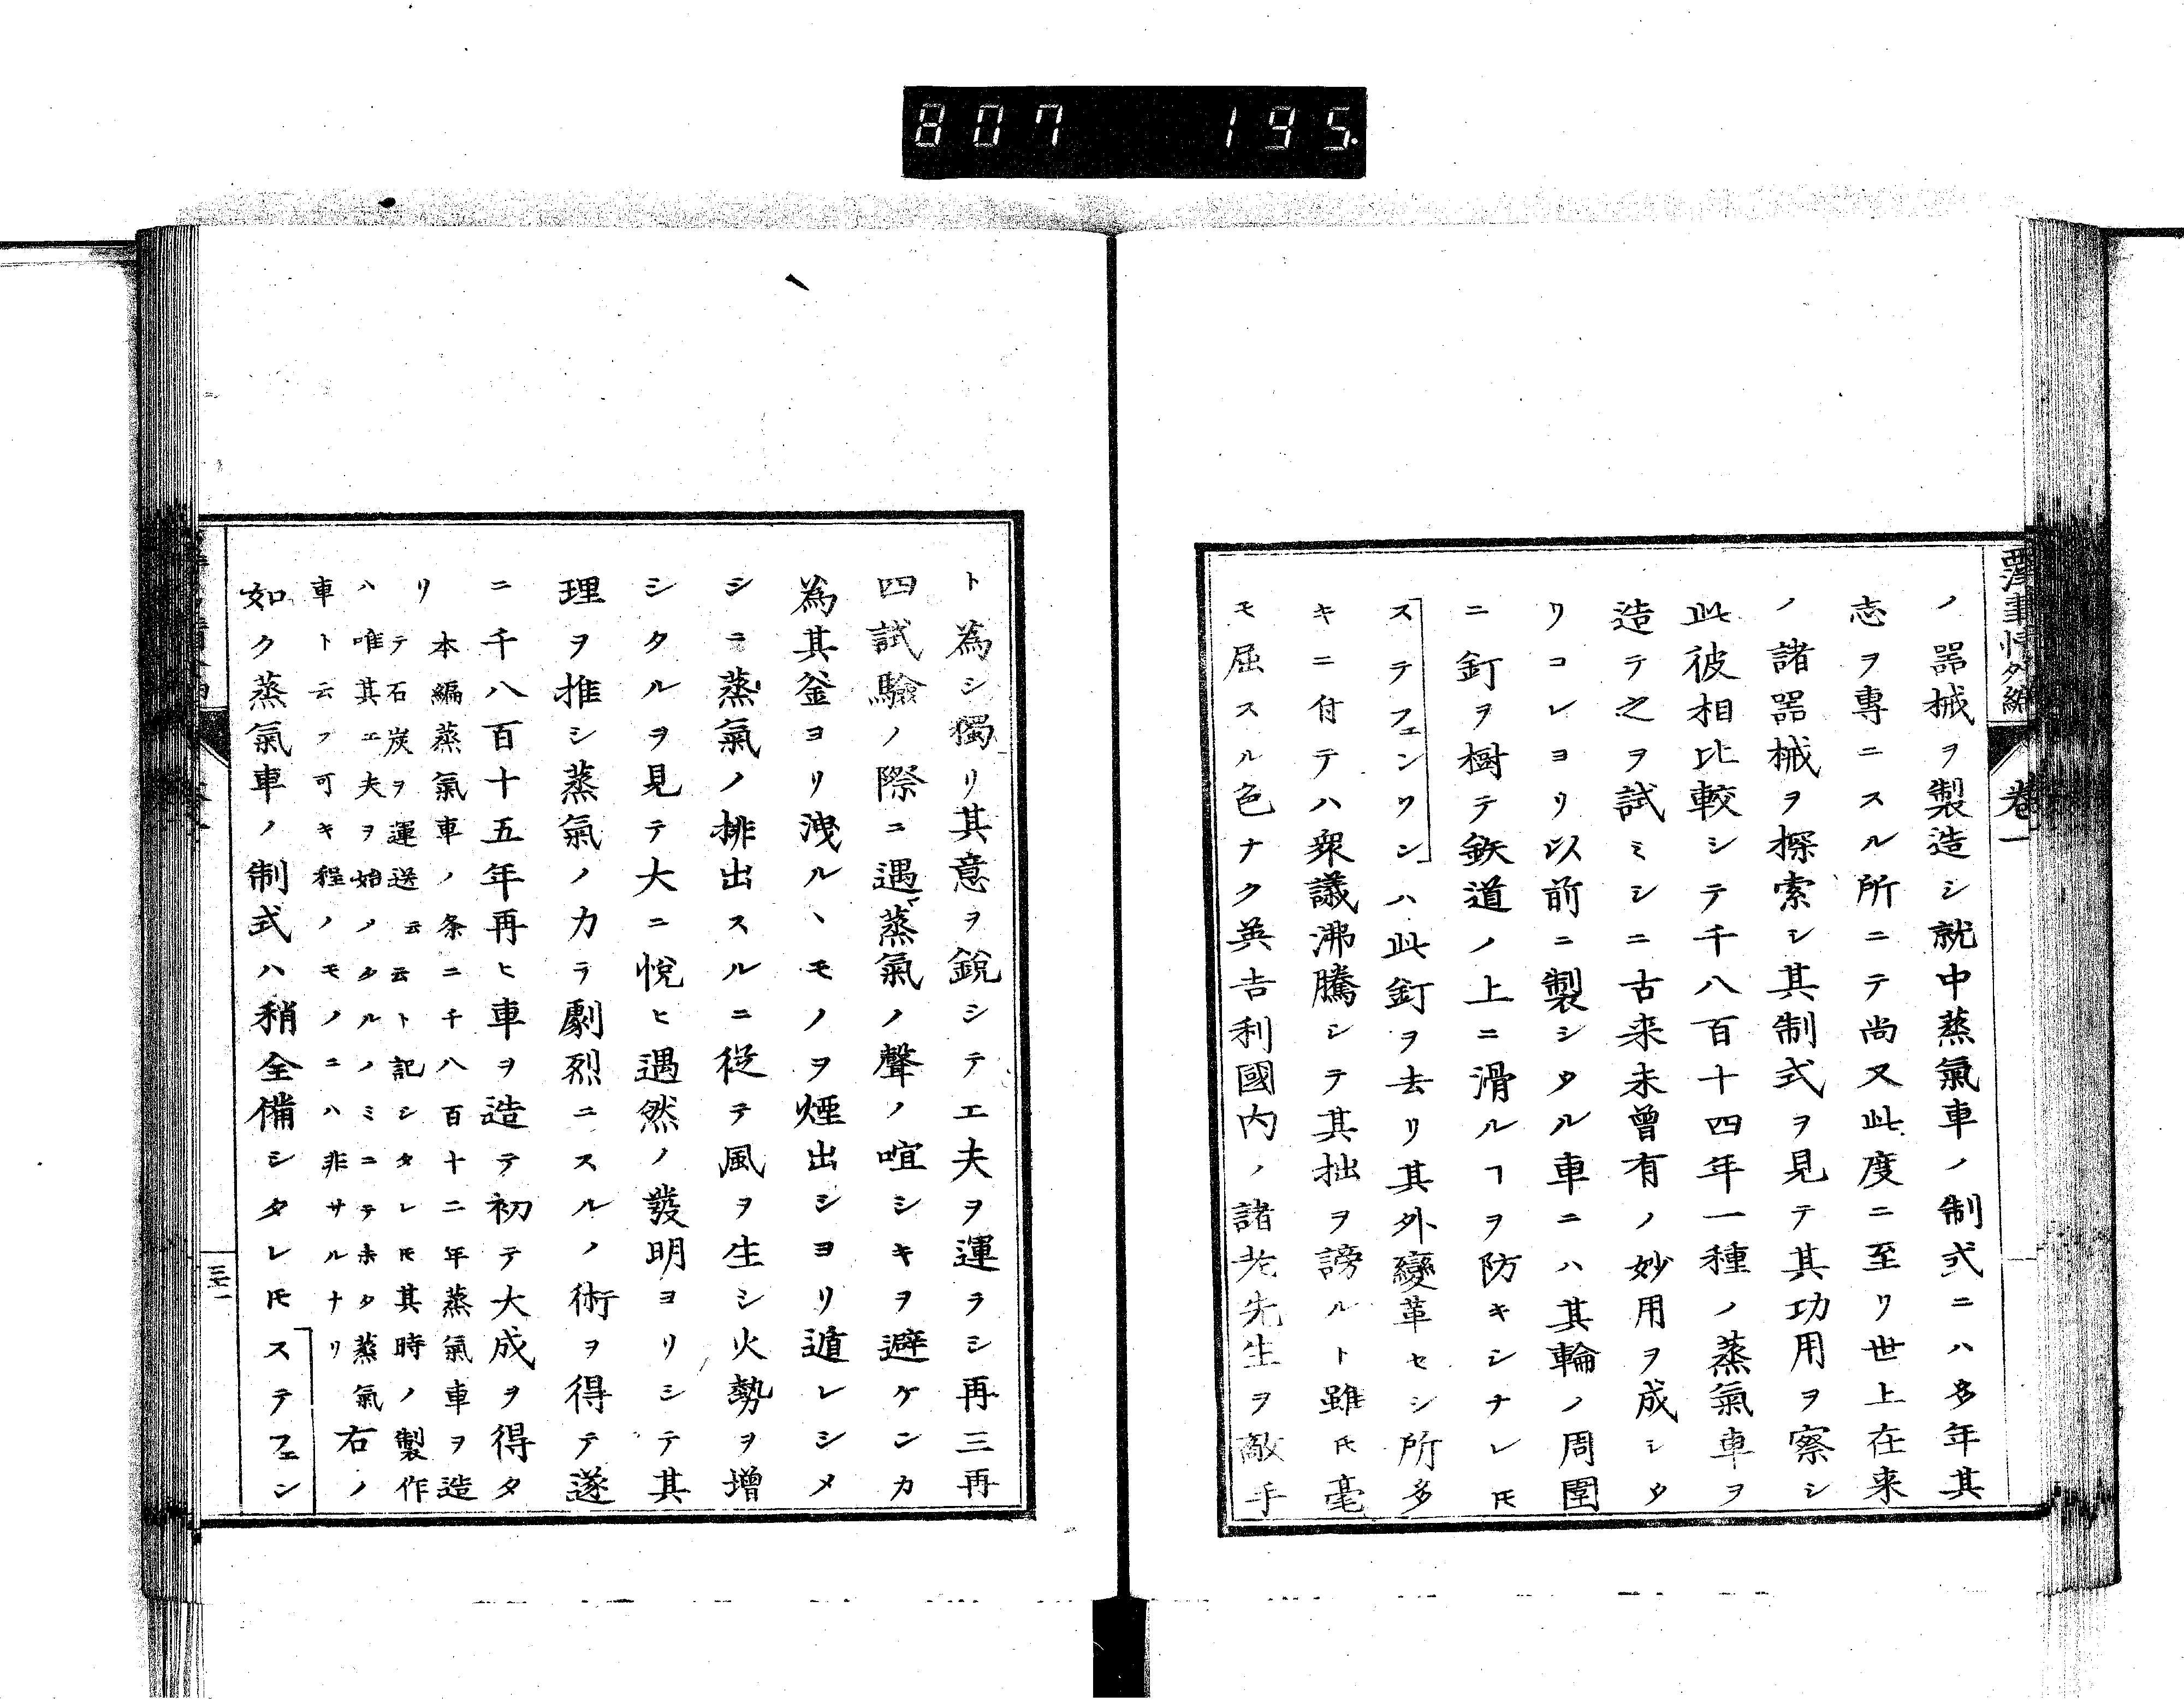 807 195.
西洋事情外編
巻一
ノ器械ヲ製造シ就中蒸氣車ノ制式ニハ多年其
志ヲ專ニスル所ニテ尚又此度ニ至リ世上在来
ノ諸器械ヲ探索シ其制式ヲ見テ其功用ヲ察シ
此彼相比較シテ千八百十四年一種ノ蒸氣車ヲ
造テ之ヲ試ミシニ古来未曾有ノ妙用ヲ成シタ
リコレヨリ以前ニ製シタル車ニハ其輪ノ周圍
ニ釘ヲ樹テ鉄道ノ上ニ滑ルヿヲ防キシナレ𪜈
ステフェンソンハ此釘ヲ去リ其外變革セシ所多
キニ付テハ衆議沸騰シテ其拙ヲ謗ルト雖𪜈毫
モ屈スル色ナク英吉利國内ノ諸老先生ヲ敵手
ト為シ獨リ其意ヲ銳シテ工夫ヲ運ラシ再三再
四試驗ノ際ニ遇蒸氣ノ聲ノ喧シキヲ避ケンカ
為其釜ヨリ洩ルヽモノヲ煙出シヨリ遁レシメ
シニ蒸氣ノ排出スルニ從テ風ヲ生シ火勢ヲ增
シタルヲ見テ大ニ悅ヒ遇然ノ發明ヨリシテ其
理ヲ推シ蒸氣ノカラ劇烈ニスルノ術ヲ得テ遂
ニ千八百十五年再ヒ車ヲ造テ初テ大成ヲ得タ
リ
本編蒸氣車ノ条ニ千八百十二年蒸氣車ヲ造
テ石炭ヲ運送云云ト記シタレ𪜈其時ノ製作
ハ唯其工夫ヲ始ノタルノミニテ未タ蒸氣
車ト云フ可キ程ノモノニハ非サルナリ
右ノ
如ク蒸氣車ノ制式ハ稍全備シタレ𪜈ステフェン
三十一